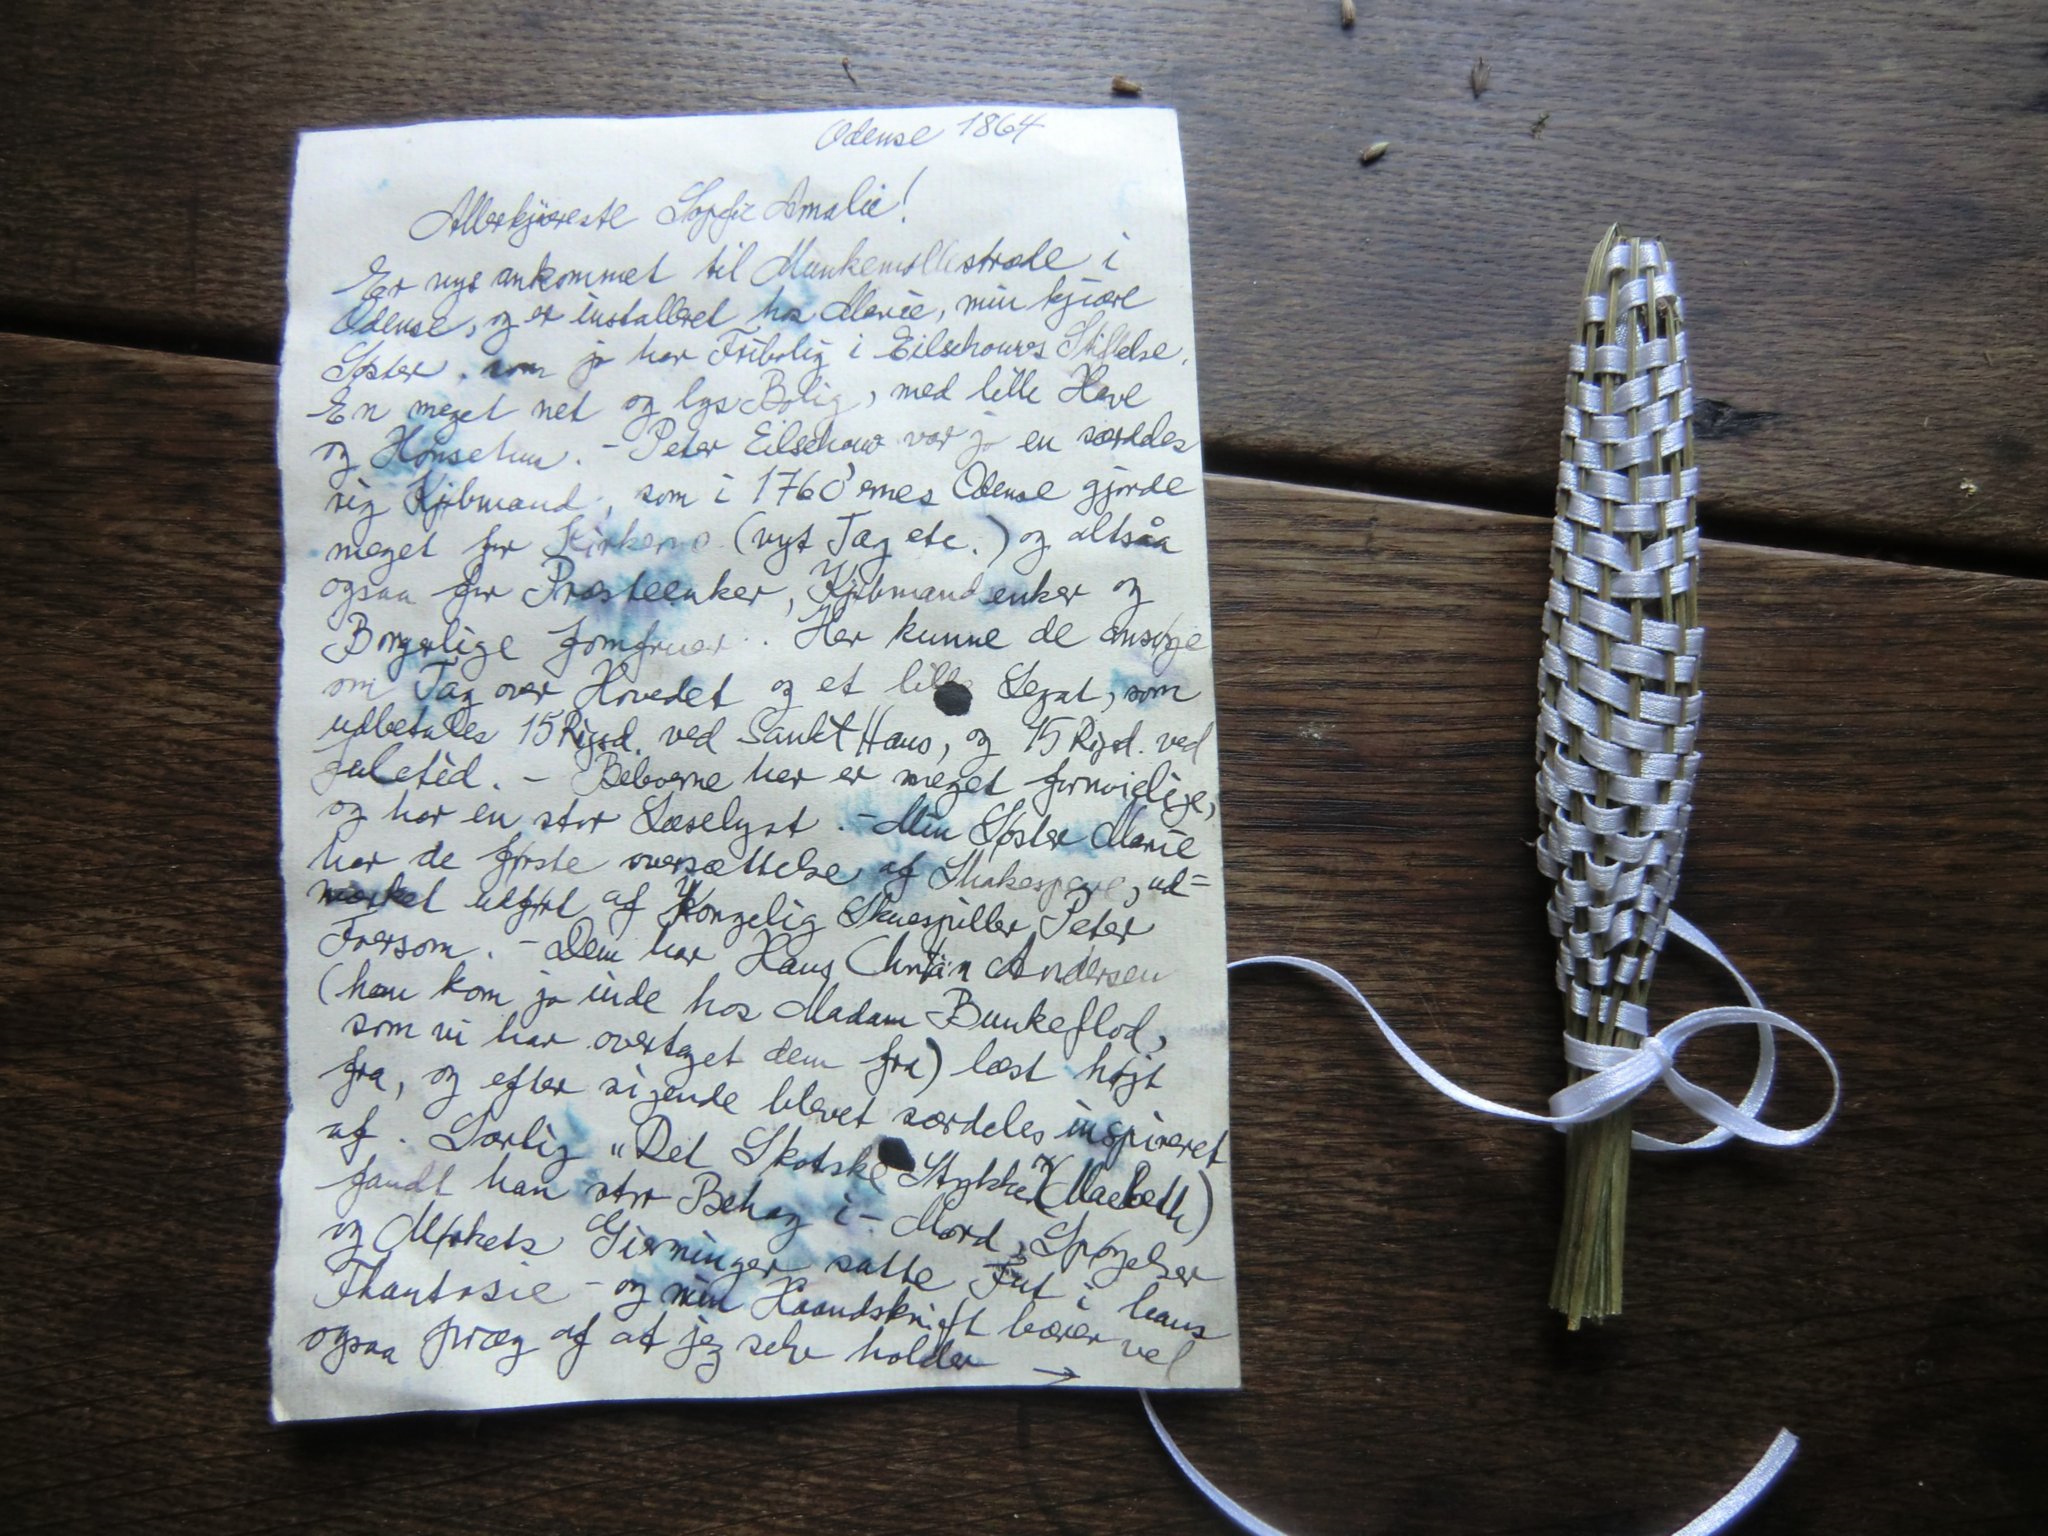 Odense 1864
Allerkjæreste Sophie Amalie!
Er nys ankommet til Munkemøllestræde i
Odense, og er installeret hos Marie, min kjære
Søster, som jo har Fribolig i Eilschouws Stiftelse.
En meget net og lys Bolig, med lille Have
og Hønsehus. - Peter Eilschouw var jo en særdeles
rig Kjøbmand, som i 1760'ernes Odense gjorde
meget for Kirkerne (nyt Tag etc.) og altsaa
ogsaa for Præsteenker, Kjøbmandenker og
Borgerlige Jomfruer. Her kunne de ansøge
om Tag over Hovedet og et lille Legat, som
udbetales 15 Rigsd. ved Sankt Hans, og 15 Rigsd. ved
Juletid. - Beboerne her er meget fornøielige,
og har en stor Læselyst. - Min Søster Marie
har de første oversættelse af Shakespeare, ud=
mærket udført af Kongelig Skuespiller Peter
Foersom. - Dem har Hans Christian Andersen
(han kom jo inde hos Madam Bunkeflod,
som vi har overtaget dem fra) læst højt
fra, og efter sigende blevet særdeles inspireret
af. Særlig "Det Skotske Stykke" (Macbeth)
fandt han stor Behag i - Mord, Spøgelser
og Mørkets Gierninger satte Fut i hans
Phantasie - og min Haandskrift bærer vel
ogsaa præg af at jeg selv holder →